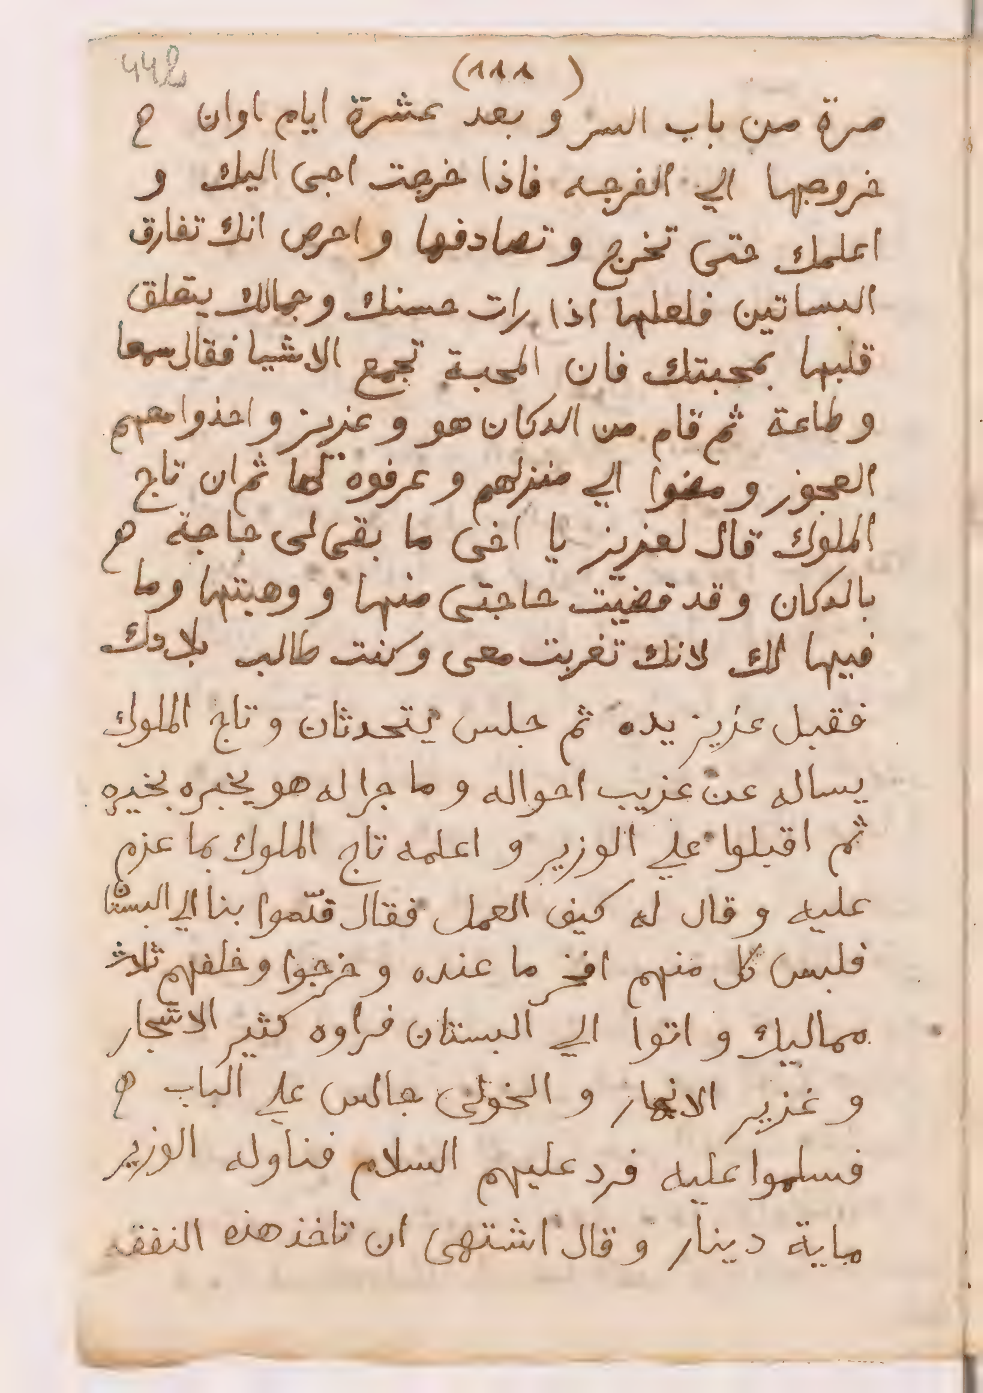 442
(١١١)
مرة من باب السر و بعد عشرة ايام اوان
خروجها الي الفرجه فاذا خرجت اجى اليك و
اعلمك حتى تخرج و تصادفها و احرص انك تفارق
البساتين فلعلها اذا رات حسنك وجمالك يتعلق
قلبها بمحبتك فان المحبة تجمع الاشيا فقال سمعا
و طاعة ثم قام من الدكان هو و عزيز و اخذوا معهم
العجوز و مضوا الي منزلهم و عرفوه لها ثم ان تاج
الملوك قال لعزيز يا اخى ما بقى لى حاجة
بالدكان و قد قضيت حاجتى منها و وهبتها وما
فيها لك لانك تغربت معى وكنت طالب بلادك
فقبل عزيز يده ثم جلس يتحدثان و تاج الملوك
يساله عن غريب احواله و ما جرا له هو يخبره بخيره
ثم اقبلوا علي الوزير و اعلمه تاج الملوك بما عزم
عليه و قال له كيف العمل فقال قوموا بنا الي البستان
فلبس كل منهم افخر ما عنده و خرجوا وخلفهم ثلاث
مماليك و اتوا الي البستان فراوه كثير الاشجار
و غزير الانهار و الخولى جالس علي الباب
فسلموا عليه فرد عليهم السلام فناوله الوزير
ماية دينار و قال اشتهى ان تاخذ هذه النفقه